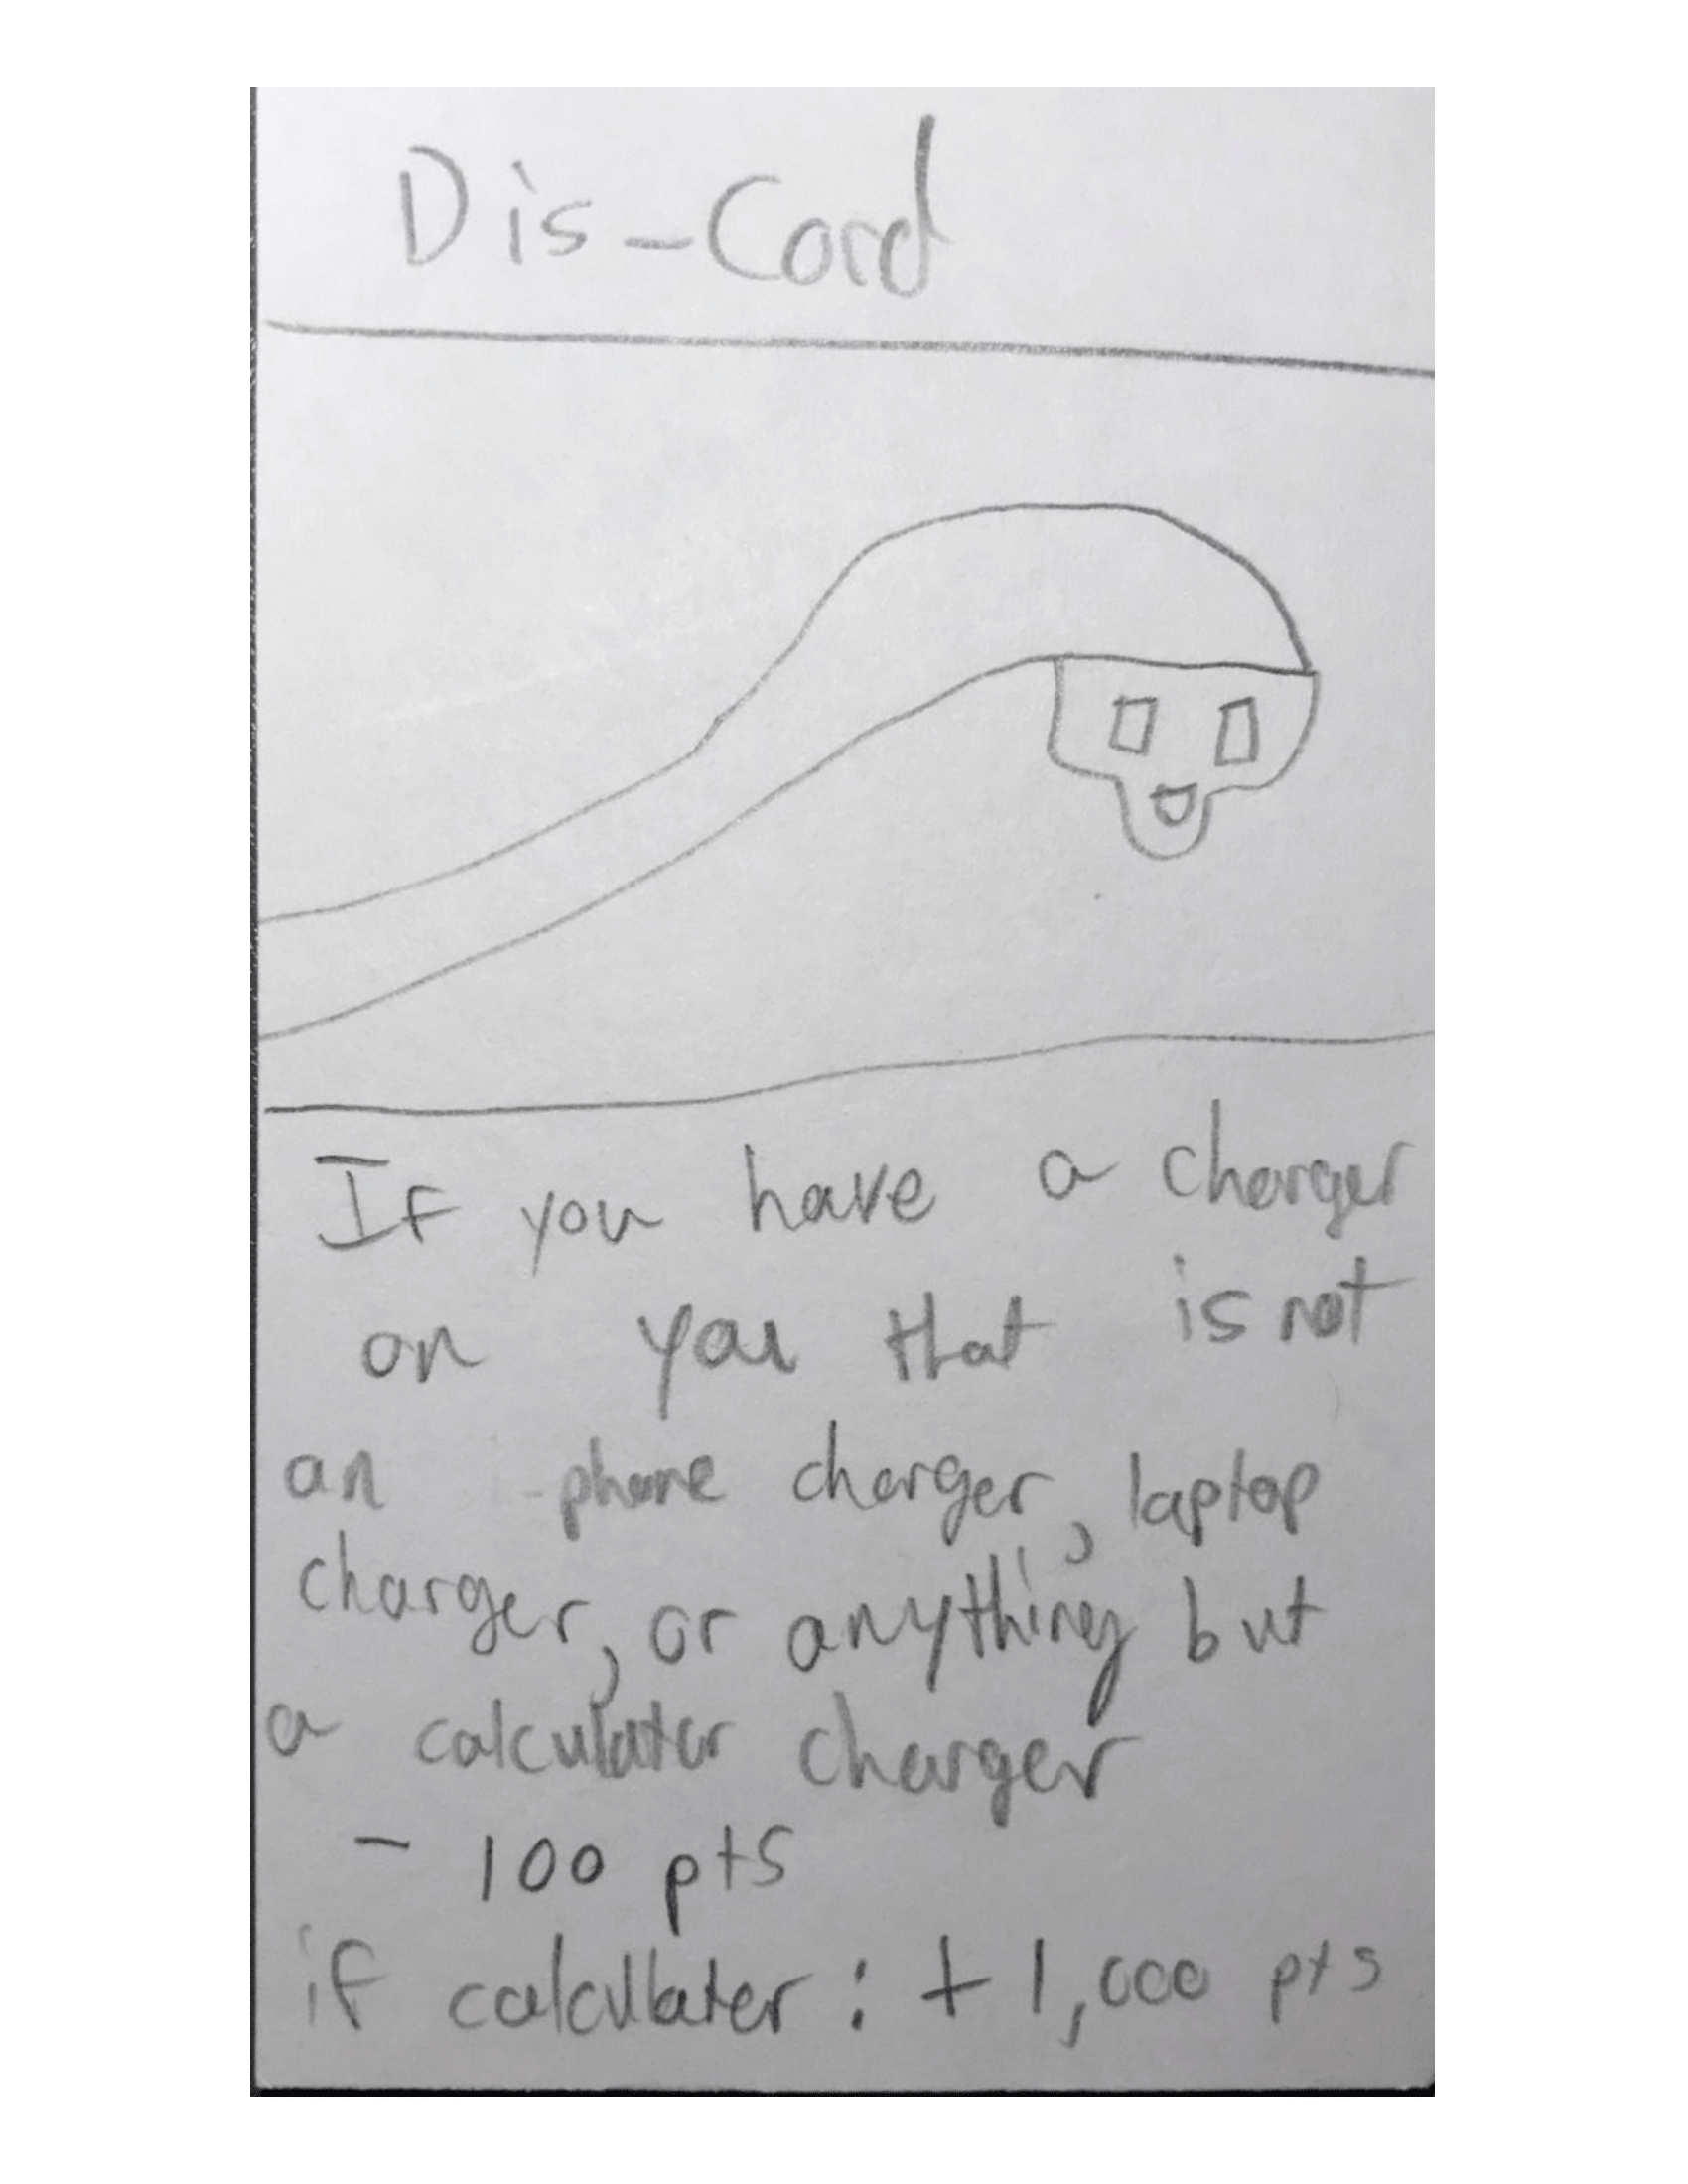 Dis-Cord
If you have a charger
on you that is not
an phone charger, laptop
charger, or anything but
a calculator charger
- 100 pts
if calcullater : + 1,000 pts